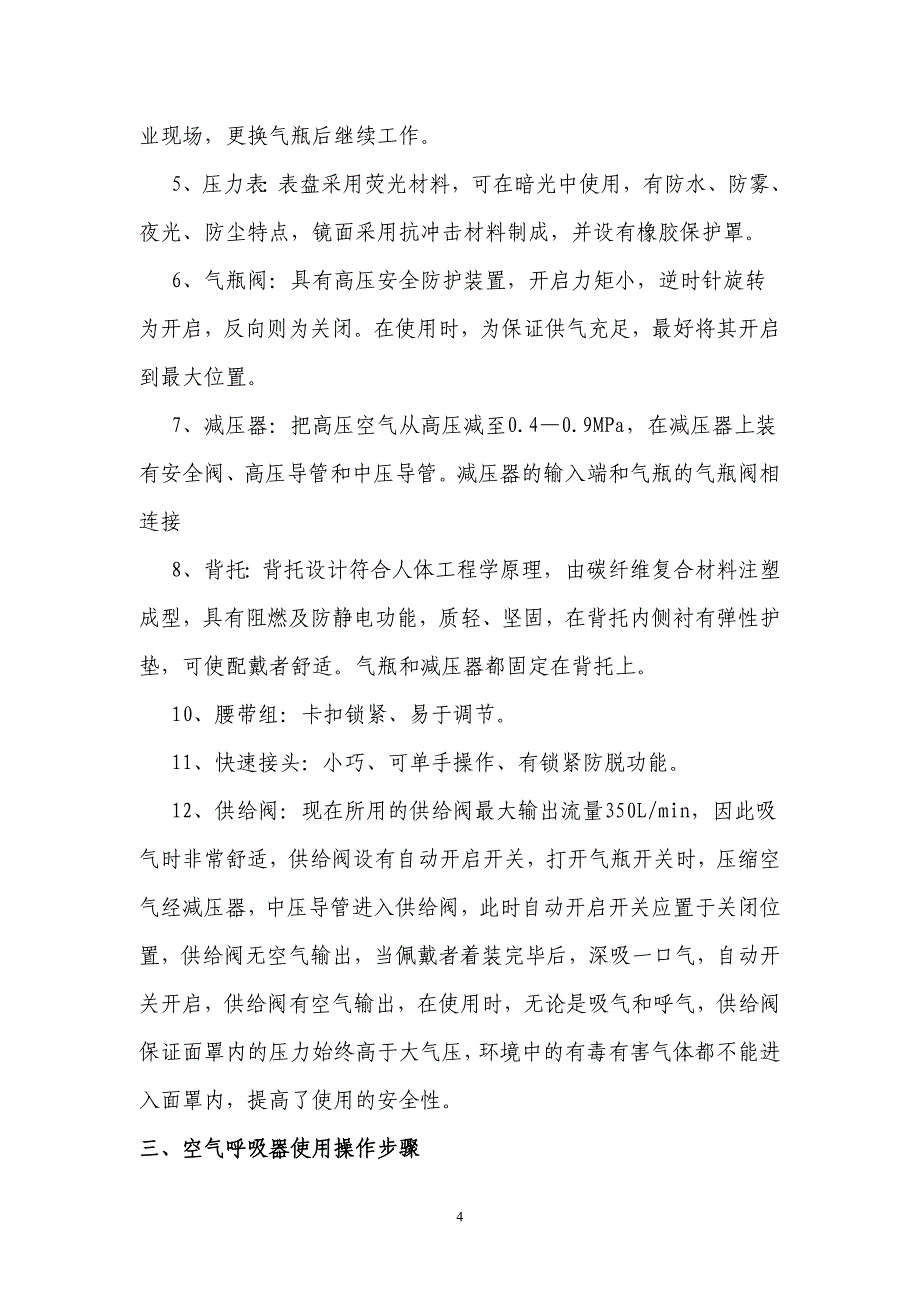 业现场，更换气瓶后继续工作。
5、压力表：表盘采用荧光材料，可在暗光中使用，有防水、防雾、
夜光、防尘特点，镜面采用抗冲击材料制成，并设有橡胶保护罩。
6、气瓶阀：具有高压安全防护装置，开启力矩小，逆时针旋转
为开启，反向则为关闭。在使用时，为保证供气充足，最好将其开启
到最大位置。
7、减压器：把高压空气从高压减至0.4—0.9MPa，在减压器上装
有安全阀、高压导管和中压导管。减压器的输入端和气瓶的气瓶阀相
连接
8、背托：背托设计符合人体工程学原理，由碳纤维复合材料注塑
成型，具有阻燃及防静电功能，质轻、坚固，在背托内侧衬有弹性护
垫，可使配戴者舒适。气瓶和减压器都固定在背托上。
10、腰带组：卡扣锁紧、易于调节。
11、快速接头：小巧、可单手操作、有锁紧防脱功能。
12、供给阀：现在所用的供给阀最大输出流量350L/min，因此吸
气时非常舒适，供给阀设有自动开启开关，打开气瓶开关时，压缩空
气经减压器，中压导管进入供给阀，此时自动开启开关应置于关闭位
置，供给阀无空气输出，当佩戴者着装完毕后，深吸一口气，自动开
关开启，供给阀有空气输出，在使用时，无论是吸气和呼气，供给阀
保证面罩内的压力始终高于大气压，环境中的有毒有害气体都不能进
入面罩内，提高了使用的安全性。
三、空气呼吸器使用操作步骤
4